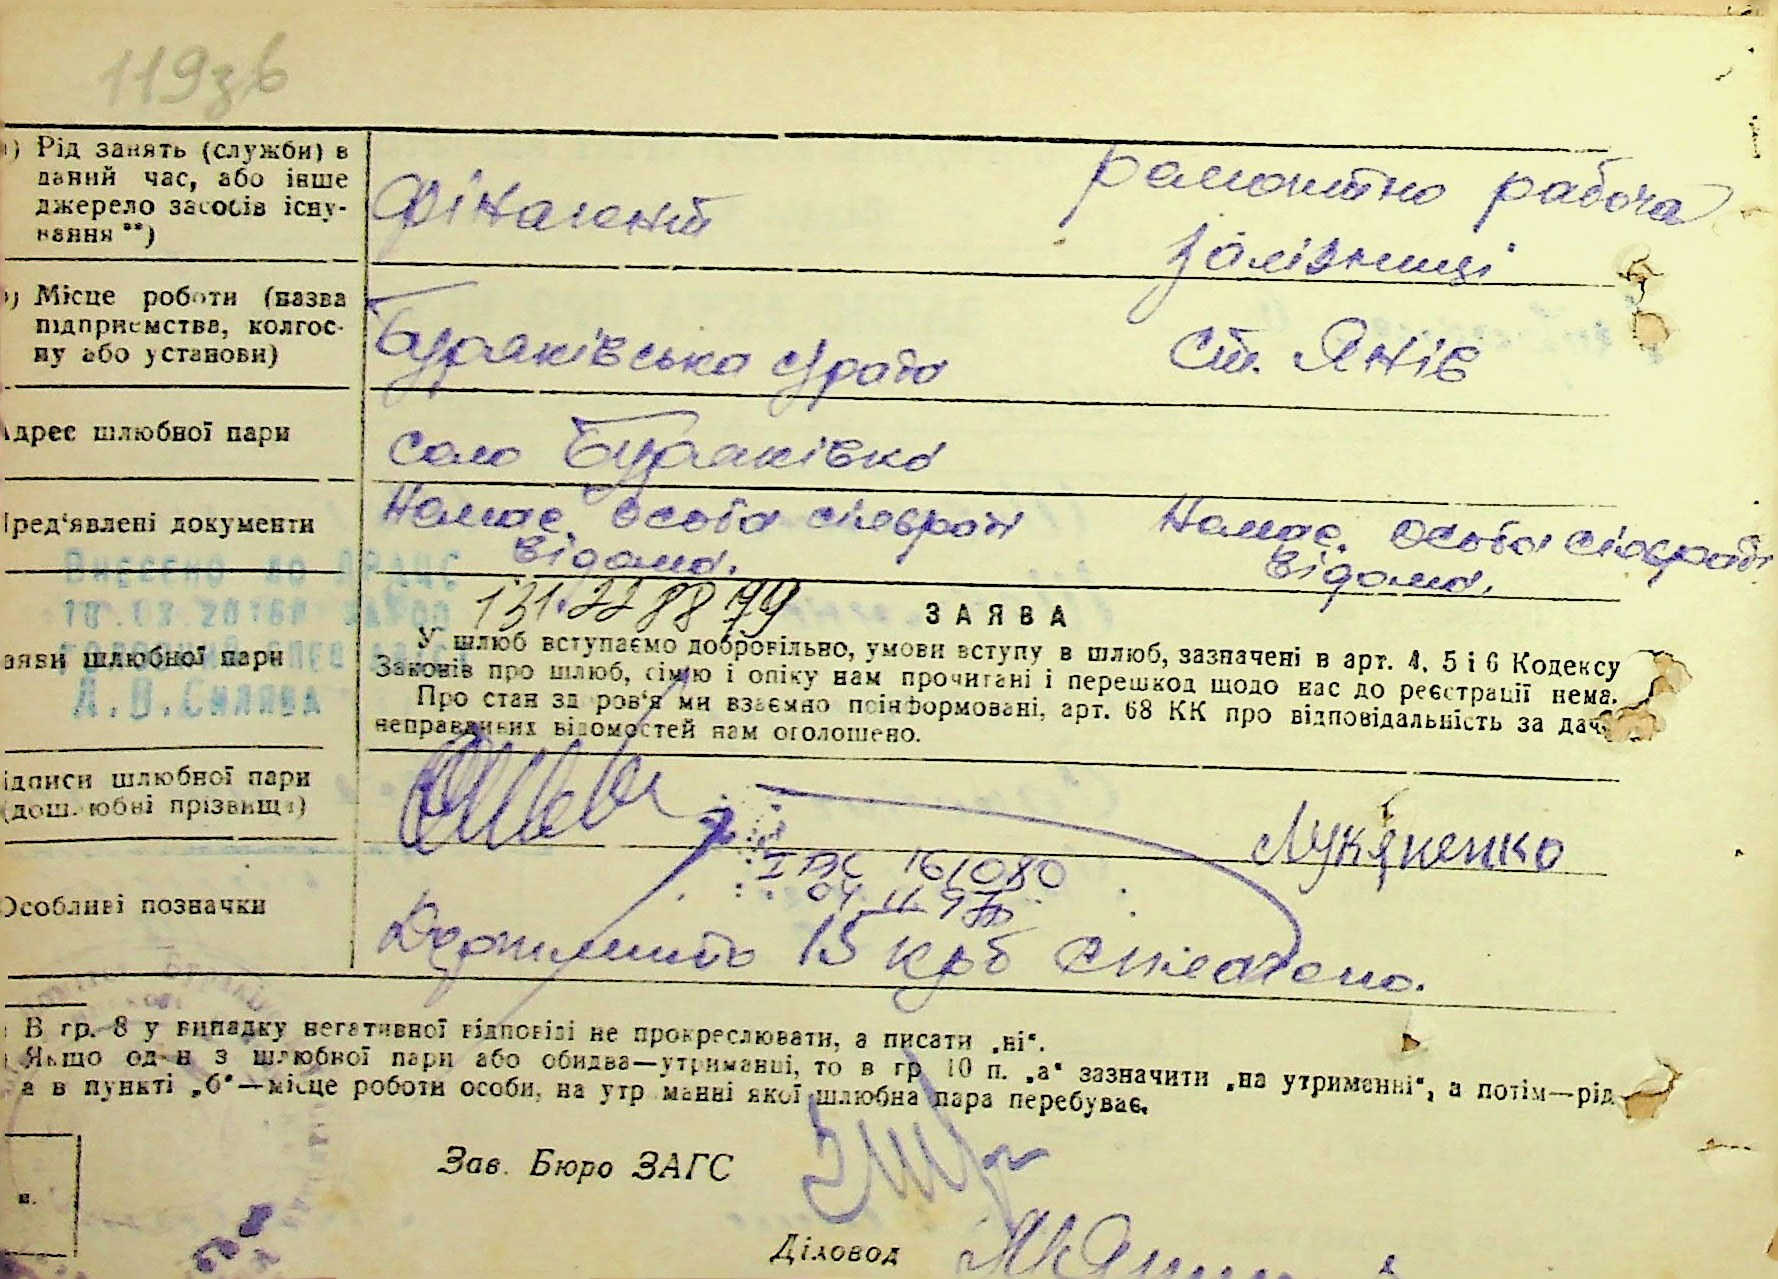 119зв
Рід занять (служби) в
даний час, або інше
джерело засобів існу-
вання **)
Фінагент
ремонтно рабоча
залізниці
Місце роботи (назва
підприємства, колгос-
пу або установи)
Буряківська с/рада
Ст. Янів
Адрес шлюбної пари
село Буряківка
Пред'явлені документи
Немає. Особа сільраді
відома.
Немає. Особа сільраді
відома.
Внесено до ДРАЦС
А.В.
131.22 88 79
ЗАЯВА
Заяви шлюбної пари
У шлюб вступаємо добровільно, умови вступу в шлюб, зазначені в арт. 4, 5 і 6 Кодексу
Законів про шлюб, сім'ю і опіку нам прочитані і перешкод щодо нас до реєстрації нема.
Про стан здоров'я ми взаємно поінформовані, арт. 68 КК про відповідальність за дачу
неправдивих відомостей нам оголошено.
Підписи шлюбної пари
(дошлюбні прізвища)
Лукяненко
161080
Особливі позначки
Держмито 15 крб сплачено.
В гр. 8 у випадку негативної відповіді не прокреслювати, а писати „ні“.
Якщо один з шлюбної пари або обидва—утриманці, то в гр. 10 п. „а“ зазначити „на утриманні“, а потім—рід
а в пункті „б“—місце роботи особи, на утриманні якої шлюбна пара перебуває.
Зав. Бюро ЗАГС
Діловод